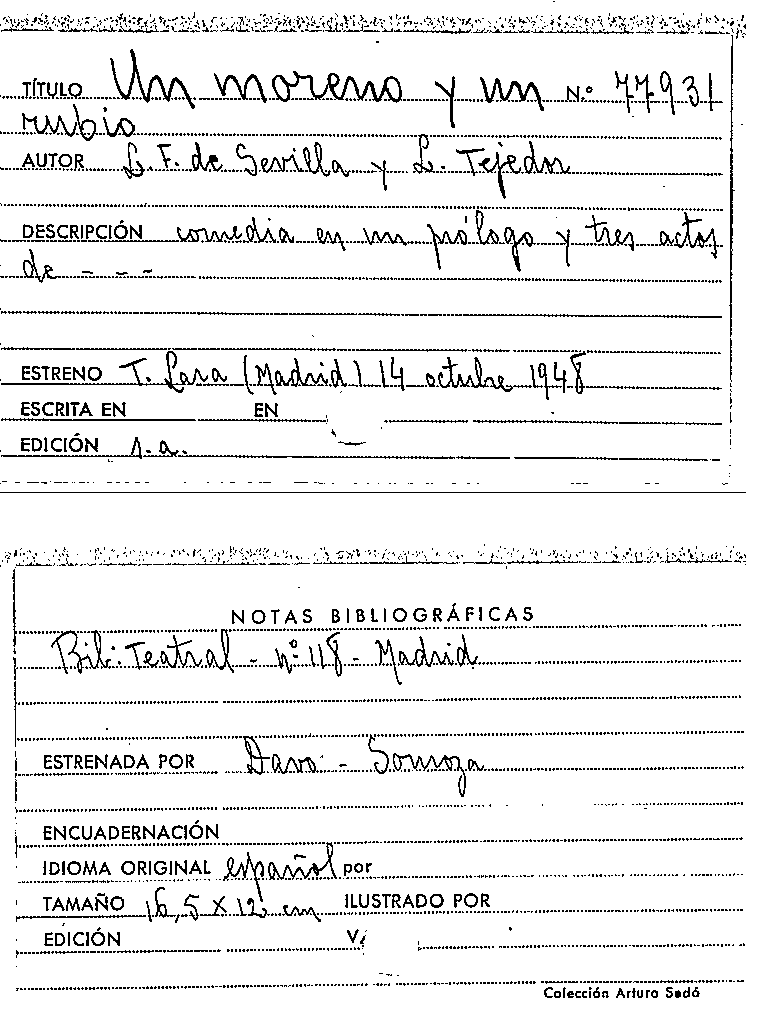 TÍTULO Un moreno y un N.º 77931
rubio
AUTOR L. F. de Sevilla y L. Tejedor
DESCRIPCIÓN comedia en un prólogo y tres actos
de - - -
ESTRENO T. Lara (Madrid) 14 octubre 1948
ESCRITA EN EN
EDICIÓN s.a.
NOTAS BIBLIOGRÁFICAS
Bib. Teatral - nº 118 - Madrid
ESTRENADA POR Davo - Somoza
ENCUADERNACIÓN
IDIOMA ORIGINAL español por
TAMAÑO 16,5 X 12 cm ILUSTRADO POR
EDICIÓN
Colección Arturo Sedó